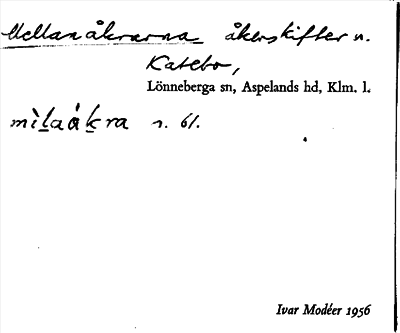 Mellanåkrarna åkerskifter n.
Katebo,
Lönneberga sn, Aspelands hd, Klm. l.
mìlaåkra n. 61.
Ivar Modéer 1956